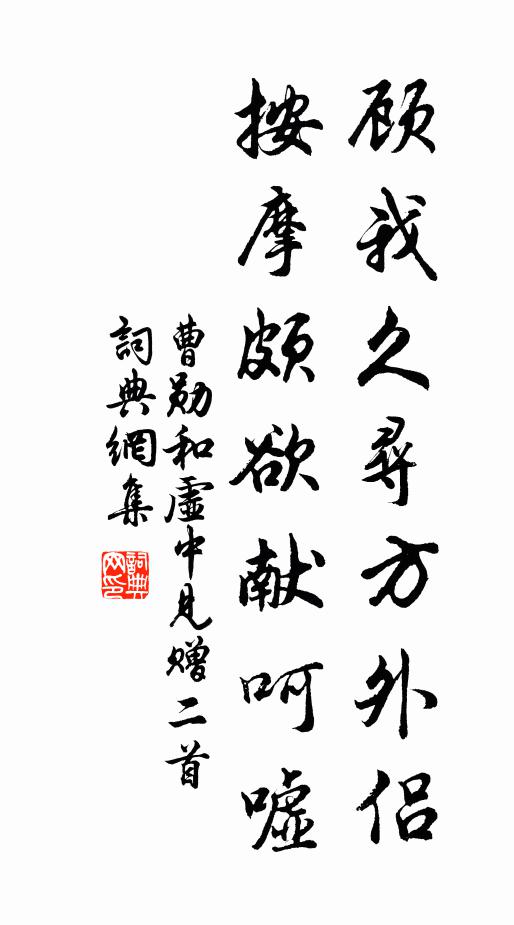 顾我久寻方外侣
按摩颇欲献呵嘘
曹勋和虚中见赠二首
詞典網集
詞典网印